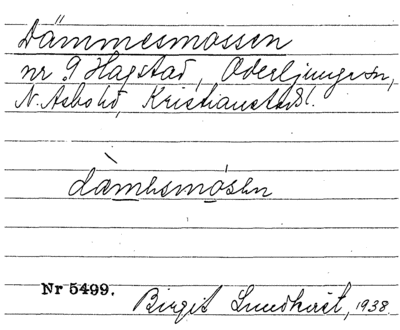 Dämmesmossen
nr 9 Hagstad, Oderljunga sn,
N. Åsbo hd, Kristianstads l.
dàmesmósen
Nr 5499.
Birgit Lundkvist, 1938